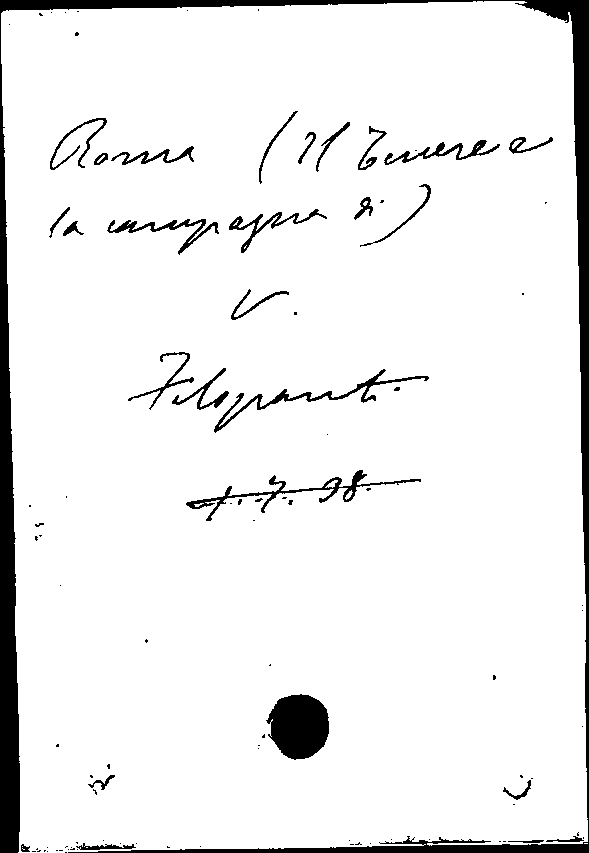 Roma (Il Tevere e
la campagna di)
V.
Filopanti.
1.7.98.